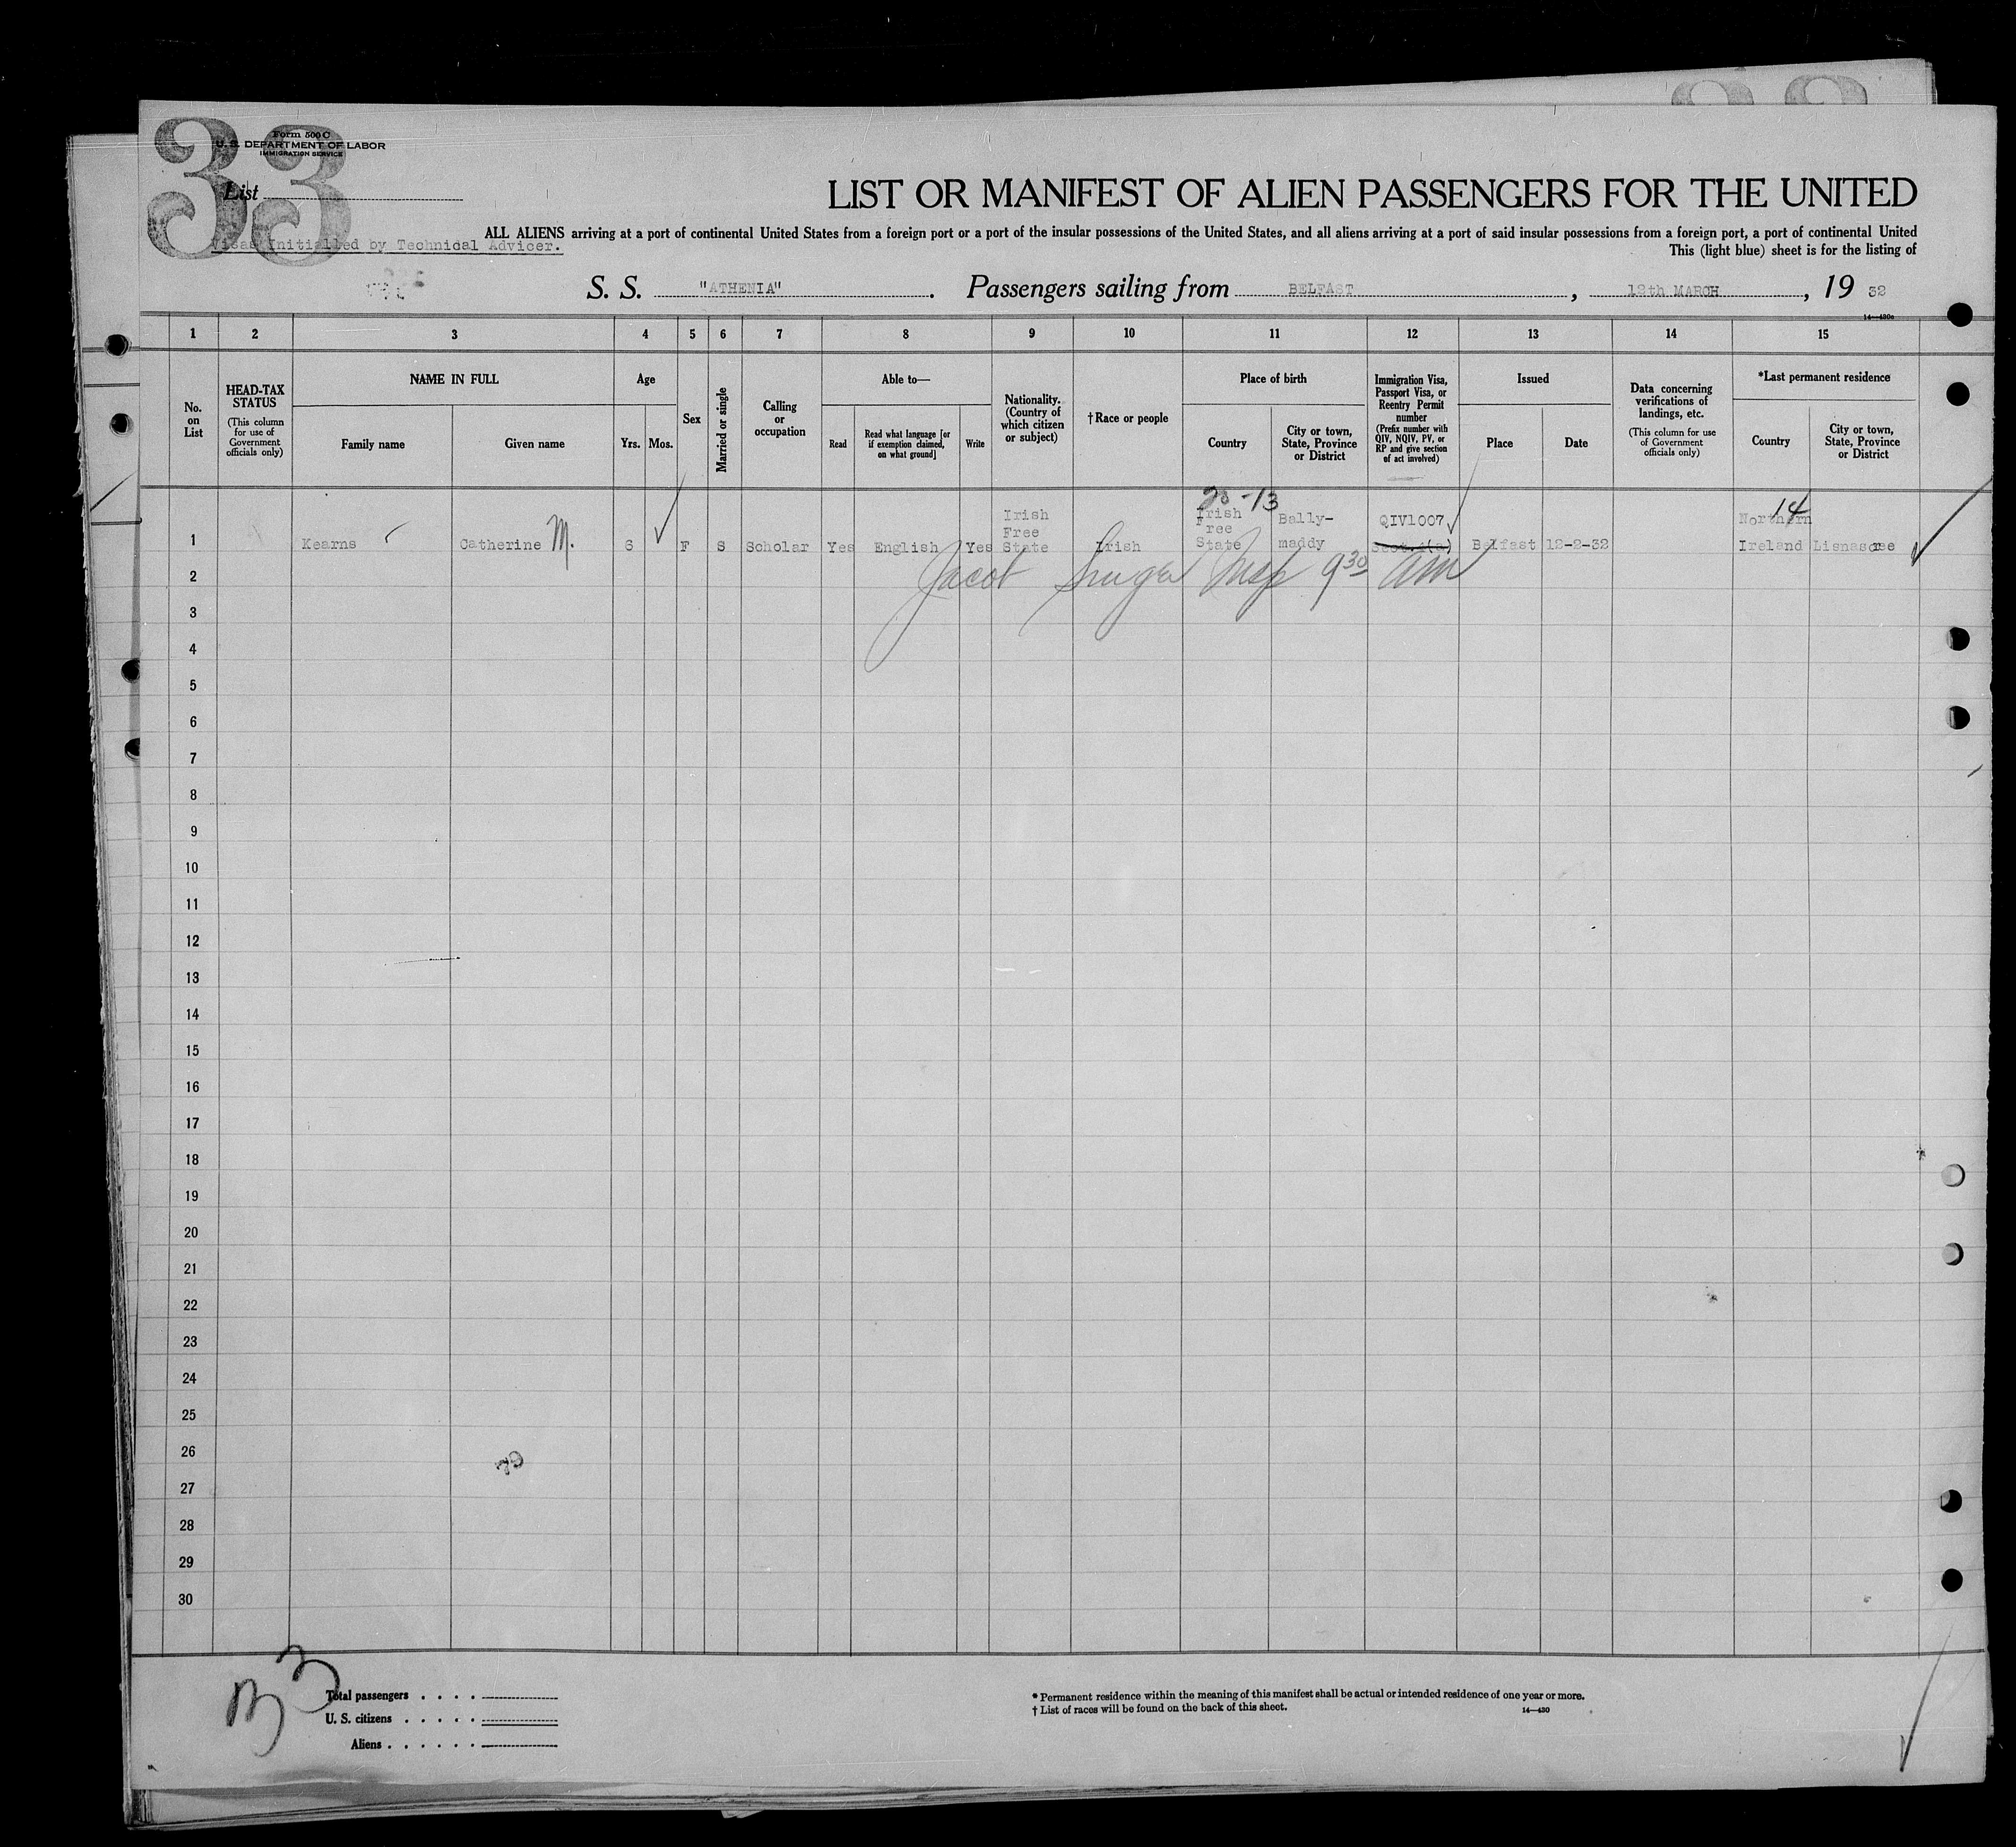 33
Form 500 C
U. S. DEPARTMENT OF LABOR
IMMIGRATION SERVICE
List
LIST OR MANIFEST OF ALIEN PASSENGERS FOR THE UNITED
ALL ALIENS arriving at a port of continental United States from a foreign port or a port of the insular possessions of the United States, and all aliens arriving at a port of said insular possessions from a foreign port, a port of continental United
Visas Initialled by Technical Advicer.
This (light blue) sheet is for the listing of
S. S. "ATHENIA". Passengers sailing from BELFAST, 12th MARCH, 19 32
14—430a
1 2 3 4 5 6 7 8 9 10 11 12 13 14 15
No. on List
HEAD-TAX STATUS
(This column for use of Government officials only)
NAME IN FULL
Family name
Given name
Age
Yrs.
Mos.
Sex
Married or single
Calling or occupation
Able to—
Read
Read what language [or if exemption claimed, on what ground]
Write
Nationality. (Country of which citizen or subject)
†Race or people
Place of birth
Country
City or town, State, Province or District
Immigration Visa, Passport Visa, or Reentry Permit number
(Prefix number with QIV, NQIV, PV, or RP and give section of act involved)
Issued
Place
Date
Data concerning verifications of landings, etc.
(This column for use of Government officials only)
*Last permanent residence
Country
City or town, State, Province or District
1 Kearns Catherine M. 6 F S Scholar Yes English Yes Irish Free State Irish Irish Free State Bally-maddy QIV1007 Belfast 12-2-32 Northern Ireland
14
Jacob Insp 9 30 am
2
3
4
5
6
7
8
9
10
11
12
13
14
15
16
17
18
19
20
21
22
23
24
25
26
27
28
29
30
Total passengers
U. S. citizens
Aliens
* Permanent residence within the meaning of this manifest shall be actual or intended residence of one year or more.
† List of races will be found on the back of this sheet.
14—430